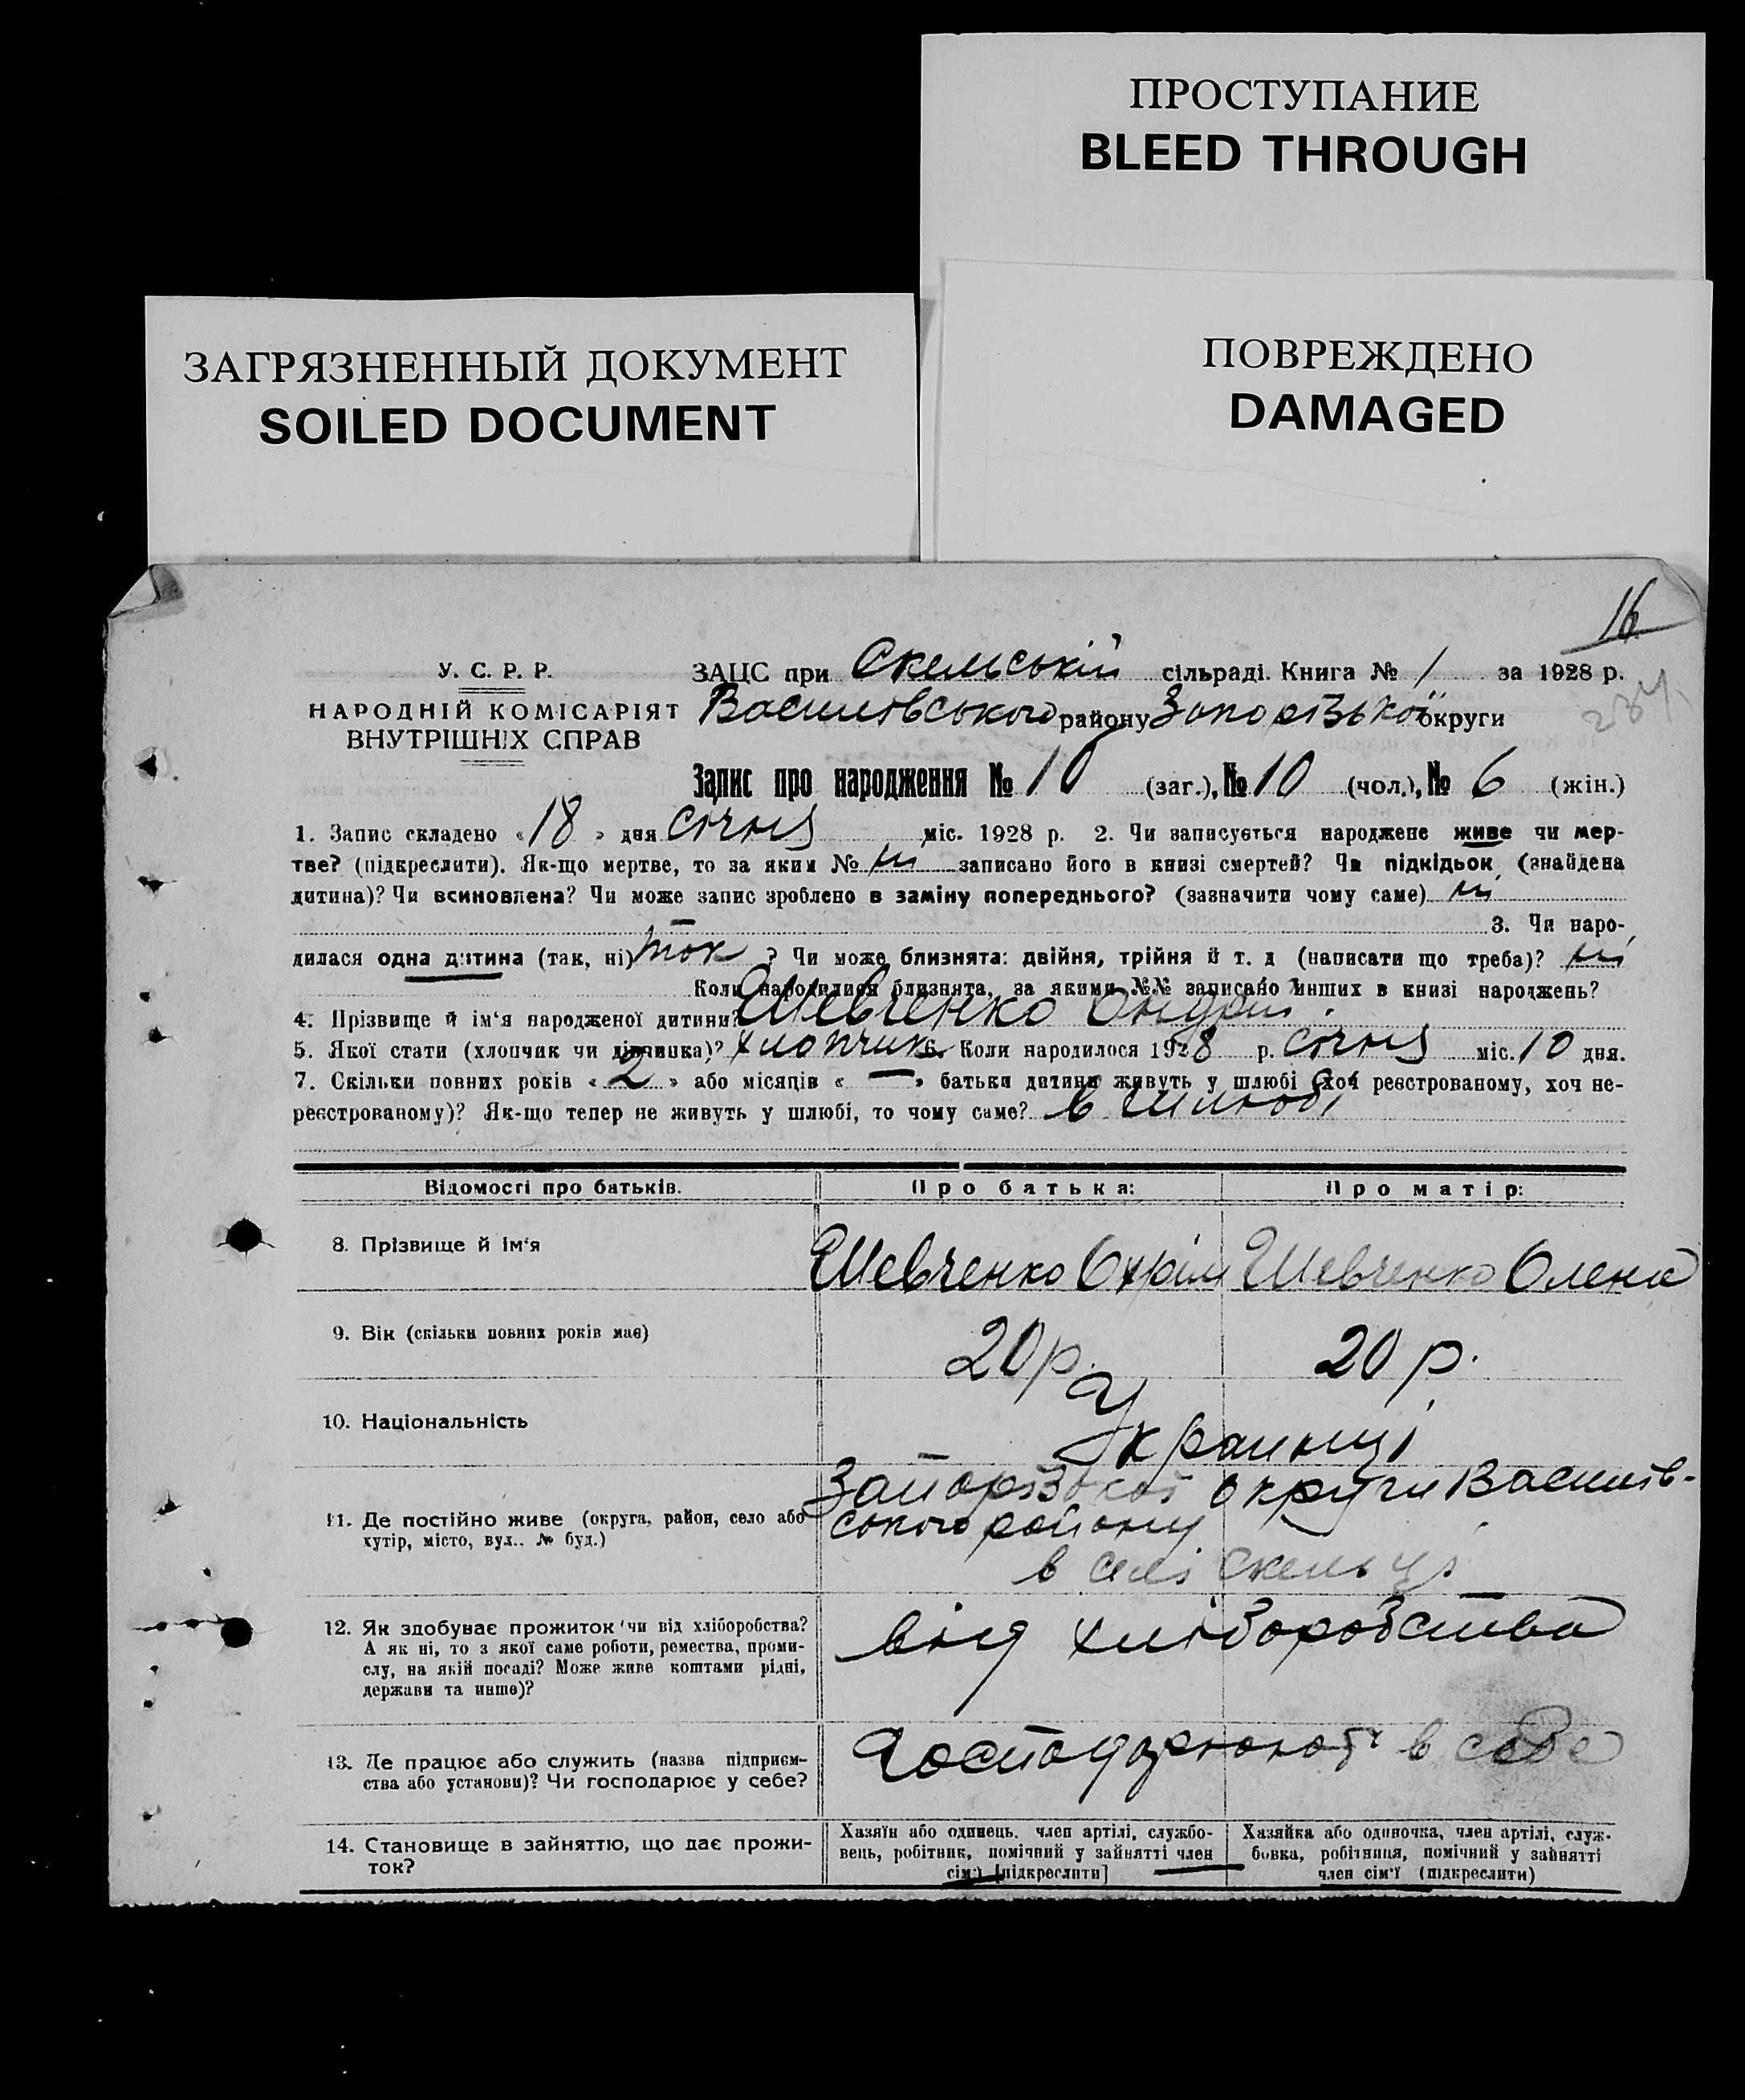 ПРОСТУПАНИЕ
BLEED THROUGH
ЗАГРЯЗНЕННЫЙ ДОКУМЕНТ
SOILED DOCUMENT
ПОВРЕЖДЕНО
DAMAGED
16
У. С. Р. Р.
НАРОДНІЙ КОМІСАРІЯТ
ВНУТРІШНІХ СПРАВ
ЗАЦС при Скельській сільраді. Книга № 1 за 1928 р.
Василівського району Запорізької округи
234
Запис про народження № 10 (заг.), № 10 (чол.), № 6 (жін.)
1. Запис складено «18» дня січня міс. 1928 р. 2. Чи записується народжене живе чи мер-
тве? (підкреслити). Як-що мертве, то за яким № ні записано його в книзі смертей? Чи підкідьок (знайдена
дитина)? Чи всиновлена? Чи може запис зроблено в заміну попереднього? (зазначити чому саме) ні
3. Чи наро-
дилася одна дитина (так, ні) так ? Чи може близнята: двійня, трійня й т. д (написати що треба)? ні
Коли народилися близнята, за якими №№ записано инших в книзі народжень?
4. Прізвище й ім'я народженої дитини? Шевченко Андрій
5. Якої стати (хлопчик чи дівчинка)? хлопчик 6. Коли народилося 1928 р. січня міс. 10 дня.
7. Скільки повних років «2» або місяців «—» батьки дитини живуть у шлюбі (хоч реєстрованому, хоч не-
реєстрованому)? Як-що тепер не живуть у шлюбі, то чому саме? в шлюбі
Відомості про батьків. Про батька: Про матір:
8. Прізвище й ім'я Шевченко Охрім Шевченко Олена
9. Вік (скільки повних років має) 20 р. 20 р.
10. Національність Українці
11. Де постійно живе (округа, район, село або хутір, місто, вул.. № буд.)
Запорізької округи Василів-
ського району
в селі Скельці
12. Як здобуває прожиток чи від хліборобства?
А як ні, то з якої саме роботи, ремества, проми-
слу, на якій посаді? Може живе коштами рідні,
держави та инше)?
від хліборобства
13. Де працює або служить (назва підприєм-
ства або установи)? Чи господарює у себе?
Господарюють в себе
14. Становище в зайняттю, що дає прожи-
ток?
Хазяїн або одинець. член артілі, службо-
вець, робітник, помічний у зайнятті член
сім'ї [підкреслити]
Хазяйка або одиночка, член артілі, служ-
бовка, робітниця, помічний у зайнятті
член сім'ї (підкреслити)